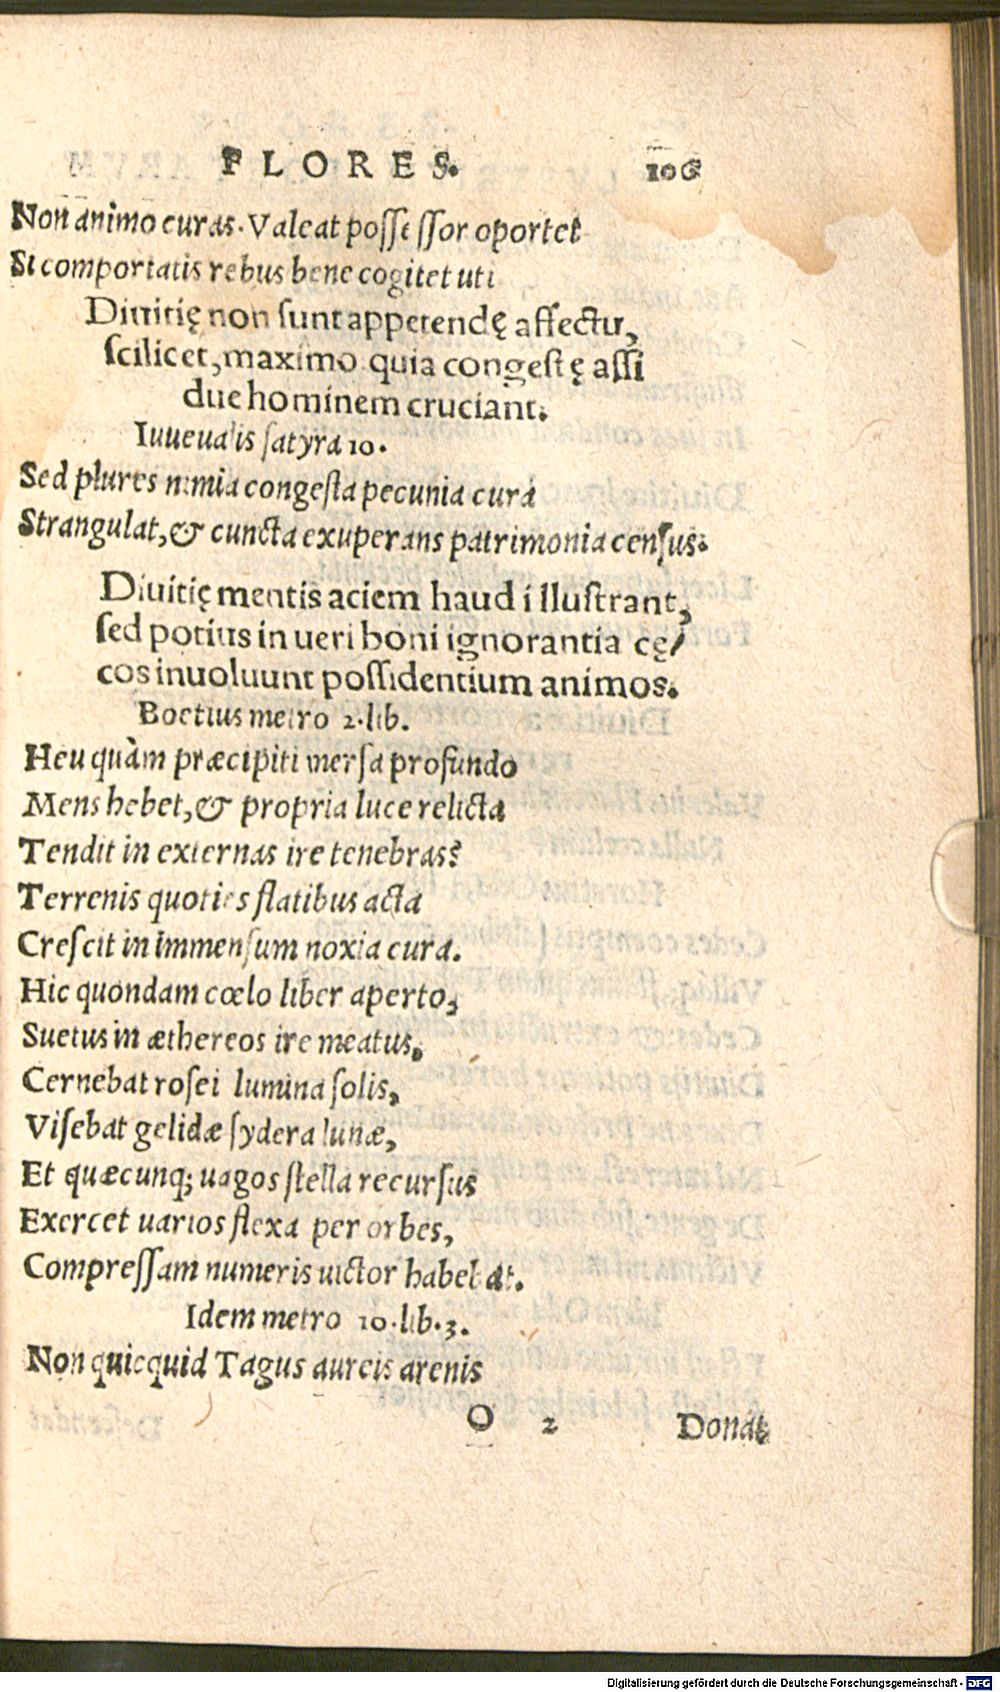 FLORES. 106
Non animo curas. Valeat possessor oportet
Si comportatis rebus bene cogitet uti
Diuitię non sunt appetendę affectu,
scilicet, maximo quia congestę assi
due hominem cruciant.
Iuuenalis satyra 10.
Sed plures nimia congesta pecunia cura
Strangulat, & cuncta exuperans patrimonia census.
Diuitię mentis aciem haud illustrant,
sed potius in ueri boni ignorantia cę/
cos inuoluunt possidentium animos.
Boetius metro 2. lib.
Heu quàm præcipiti mersa profundo
Mens hebet, & propria luce relicta
Tendit in externas ire tenebras?
Terrenis quoties flatibus acta
Crescit in immensum noxia cura.
Hic quondam cœlo liber aperto,
Suetus in æthereos ire meatus,
Cernebat rosei lumina solis,
Visebat gelidæ sydera lunæ,
Et quæcunq; uagos stella recursus
Exercet uarios flexa per orbes,
Compressam numeris uictor habebat.
Idem metro 10. lib. 3.
Non quicquid Tagus aureis arenis
O 2 Donat
Digitalisierung gefördert durch die Deutsche Forschungsgemeinschaft - DFG